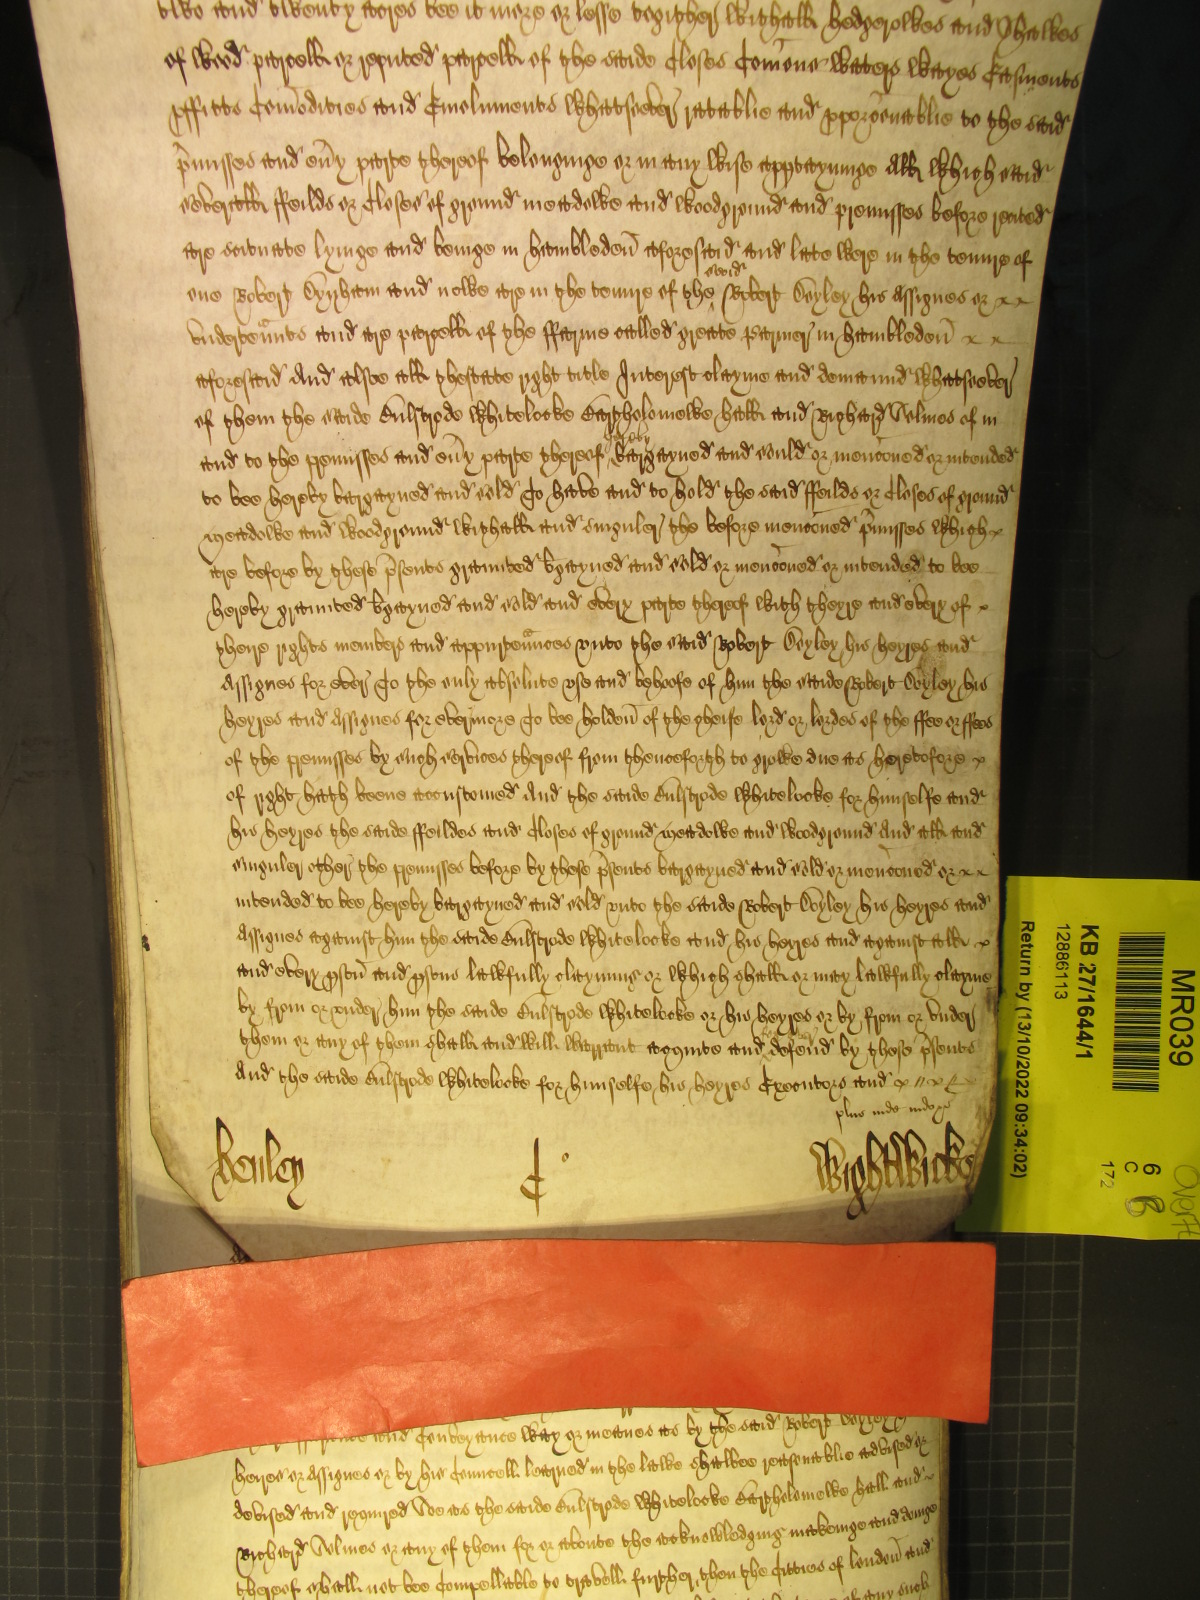 two and twenty acres bee it more or lesse togither withall hedgerowes and Shawes
of wood parcell or reputed parcell of the saide Closes Comons waters wayes Easments
pffitts Comodities and Emoluments whatsoever ratablie and pporconablie to the said
pmisses and evy parte thereof belonginge or in any wise apptayninge All which said
severall ffeilds or Closes of ground meadowe and woodground and premisses before recited
are scituate lyinge and beinge in Hambleden aforesaid and late were in the tenure of
one Robert and nowe are in the tenure of the said Robert Doyley his Assignes or x x
undertennts and are parcell of the ffarme called greate Parmer in Hambleden x x
aforesaid And alsoe all thestate right title Interest clayme and demaund whatsoever
of them the saide Bulstrode Whitelocke Bartholomewe Hall and Richard of in
and to the premisses and evy parte thereof hereby bargayned and sould or menconed or intended
to bee hereby bargayned and sold To have and to hold the said ffeilds or Closes of ground
meadowe and woodground withall and singuler the before menconed pmisses which x
are before by these psents graunted bgayned and sold or menconed or intended to bee
hereby graunted bgayned and sold and every parte thereof with theyre and every of x
theire rights members and appurtennces unto the said Robert Doyley his heyres and
Assignes for ever To the only absolute use and behoofe of him the saide Robert Doyley his
heyres and Assignes for evermore To bee holden of the cheife lord or lordes of the ffee or ffees
of the premisses by such services thereof from thenceforth to growe due as heretofore x
of right hath beene accustomed And the saide Bulstrode Whitelocke for himselfe and
his heyres the saide ffeildes and Closes of ground meadowe and woodground And all and
singuler other the premisses before by these psents bargayned and sold or menconed or x x
intended to bee hereby bargayned and sold unto the saide Robert Doyley his heyres and
Assignes against him the saide Bulstrode Whitelocke and his heyres and against all x
and every pson and psons lawfully clayming or which shall or may lawfully clayme
by from or under him the saide Bulstrode Whitelocke or his heyres or by from or under
them or any of them shall and will warrant acquite and defend by these psents
And the saide Bulstrode Whitelocke for himselfe his heyres Executors and x
plus inde
Henley
Wightwicke
and Conveyance way or meanes as by the said Robert Doyley
heires or Assignes or by his Councell learned in the lawe shalbee reasonablie advised or
devised and required Soe as the saide Bulstrode Whitelocke Bartholomewe Hall and
Richard or any of them for or aboute the acknowledging makeinge and doinge
thereof shall not bee Compellable to travell further then the Citties of London and
of any such
MR039
KB 27/1644/1
12886113
Return by (13/10/2022 09:34:02)
6
C
172
6